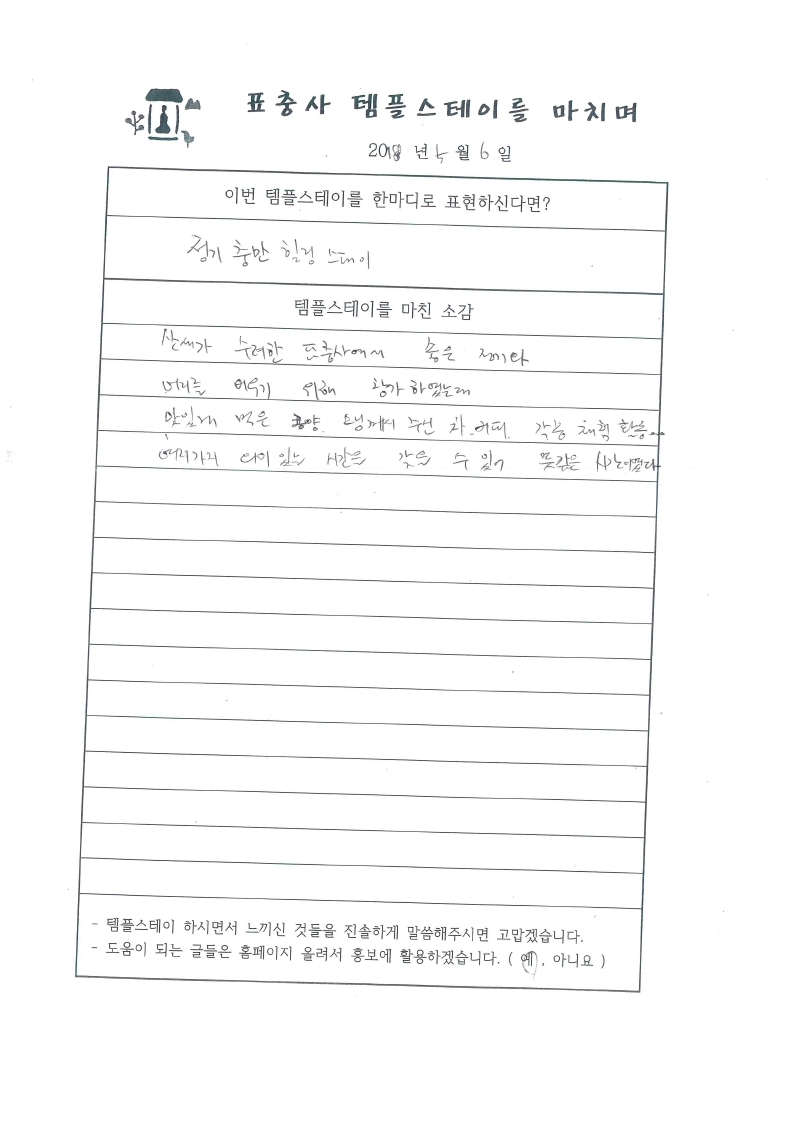 표충사 템플스테이를 마치며
2018 년 5 월 6 일
이번 템플스테이를 한마디로 표현하신다면?
정기 충만 힐링 스테이
템플스테이를 마친 소감
산세가 수려한 표충사에서 좋은 정기와
머리를 비우기 위해 참가하였는데
맛있게 먹은 공양. 스님께서 주신 차.커피. 각종 체험 활동..
여러가지 의미있는 시간을 갖을 수 있어 뜻깊은 시간이었다
- 템플스테이 하시면서 느끼신 것들을 진솔하게 말씀해주시면 고맙겠습니다.
- 도움이 되는 글들은 홈페이지 올려서 홍보에 활용하겠습니다. ( 예 , 아니요 )